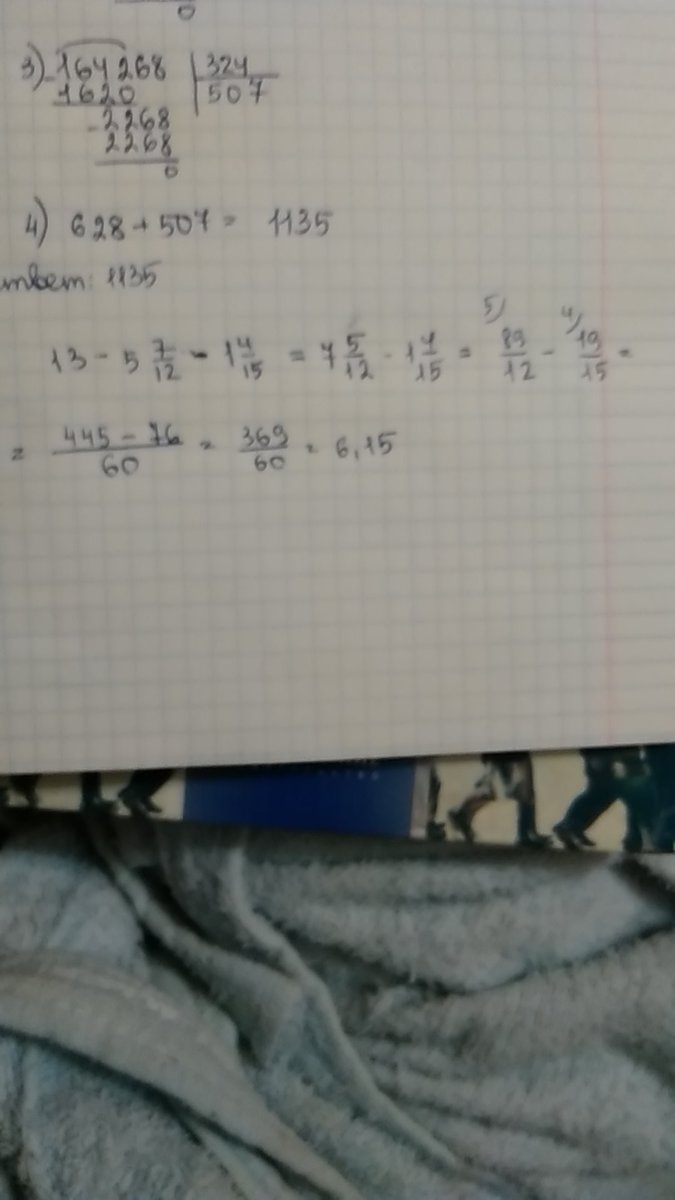 0
3) - 164268 | 324
1620 | 507
- 2268
2268
0
4) 628 + 507 = 1135
твет: 1135
13 - 5 7/12 - 1 4/15 = 7 5/12 - 1 4/15 = 5) 89/12 - 4) 19/15 =
= 445 - 76/60 = 369/60 = 6,15